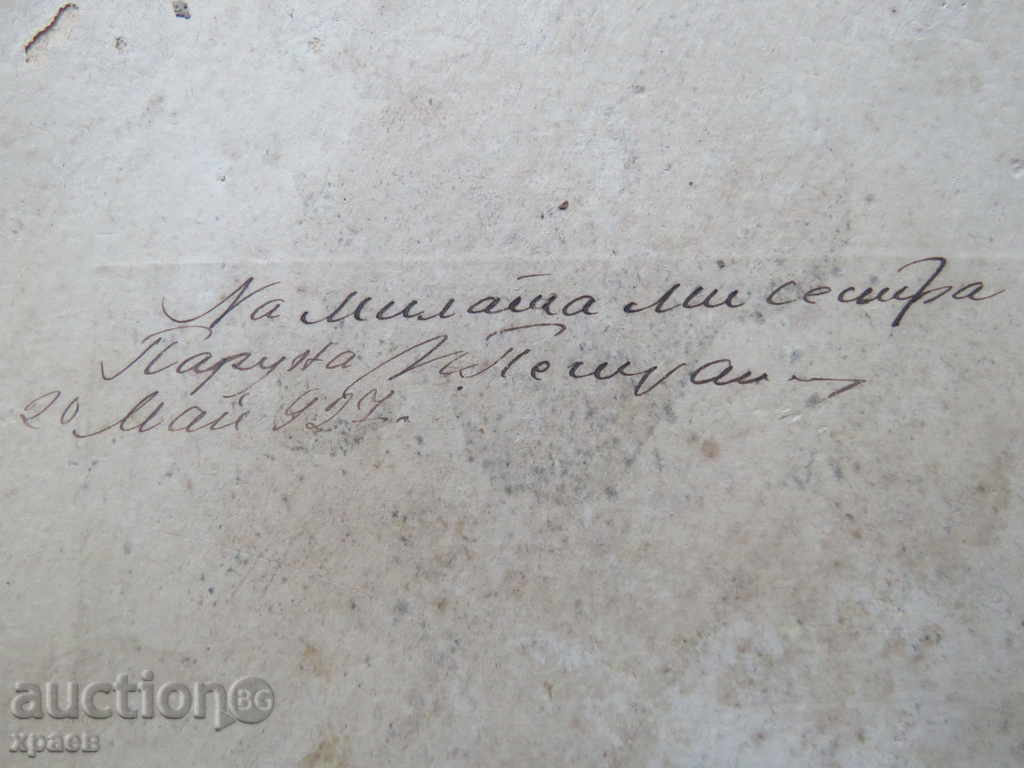 На милата ми сестра
Паруша
20 Май 927.
auctionBG
храев